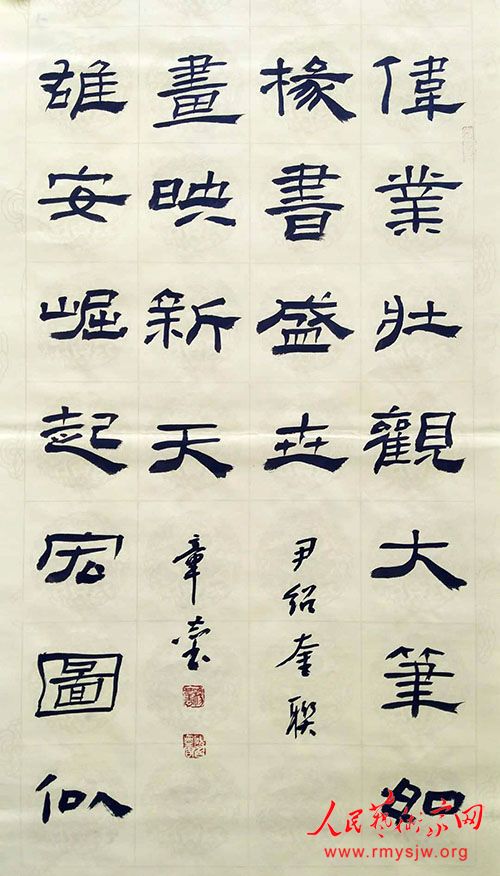 偉業壯觀大筆如
椽書盛世
尹紹奎聯
雄安崛起宏圖似
畫映新天
章
人民藝術家网
www.rmysjw.org